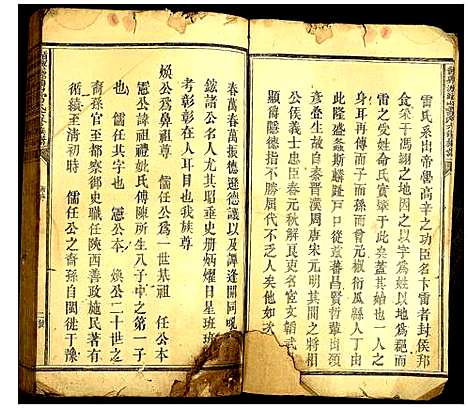 雷氏系出帝嚳高辛之功臣名雷者封侯邦
食采于馮翊之地因之以字為姓以地為
雷之受姓命氏實肇于此矣蓋其始也以一人之
身耳再傳而子而孫而曾元椒衍瓜緜人丁由
此隆盛螽斯麟趾戶口從茲蕃昌賢哲輩出須
彥叠生故自秦晉漢周唐宋元明其間之將相
公侯義士忠臣春元秋解良吏名宦文韜武
顯爵懿德指不勝屈代不乏人矣
春萬春萬振德遜德議以及譚逢開同
鋐諸公名人尤其昭垂史册炳燿日星班班
考彰彰在人耳目也我族尊
煥公為鼻祖 儒任公為一世基祖 任公本
憲公諱祖禮妣氏傅陳所生八子中之第一子
儒任其字也 憲公本 煥公二十世之
裔孫官至都察御史職任陝西善政施民著有
循績至清初時 儒任公之裔孫自閩徙于豫